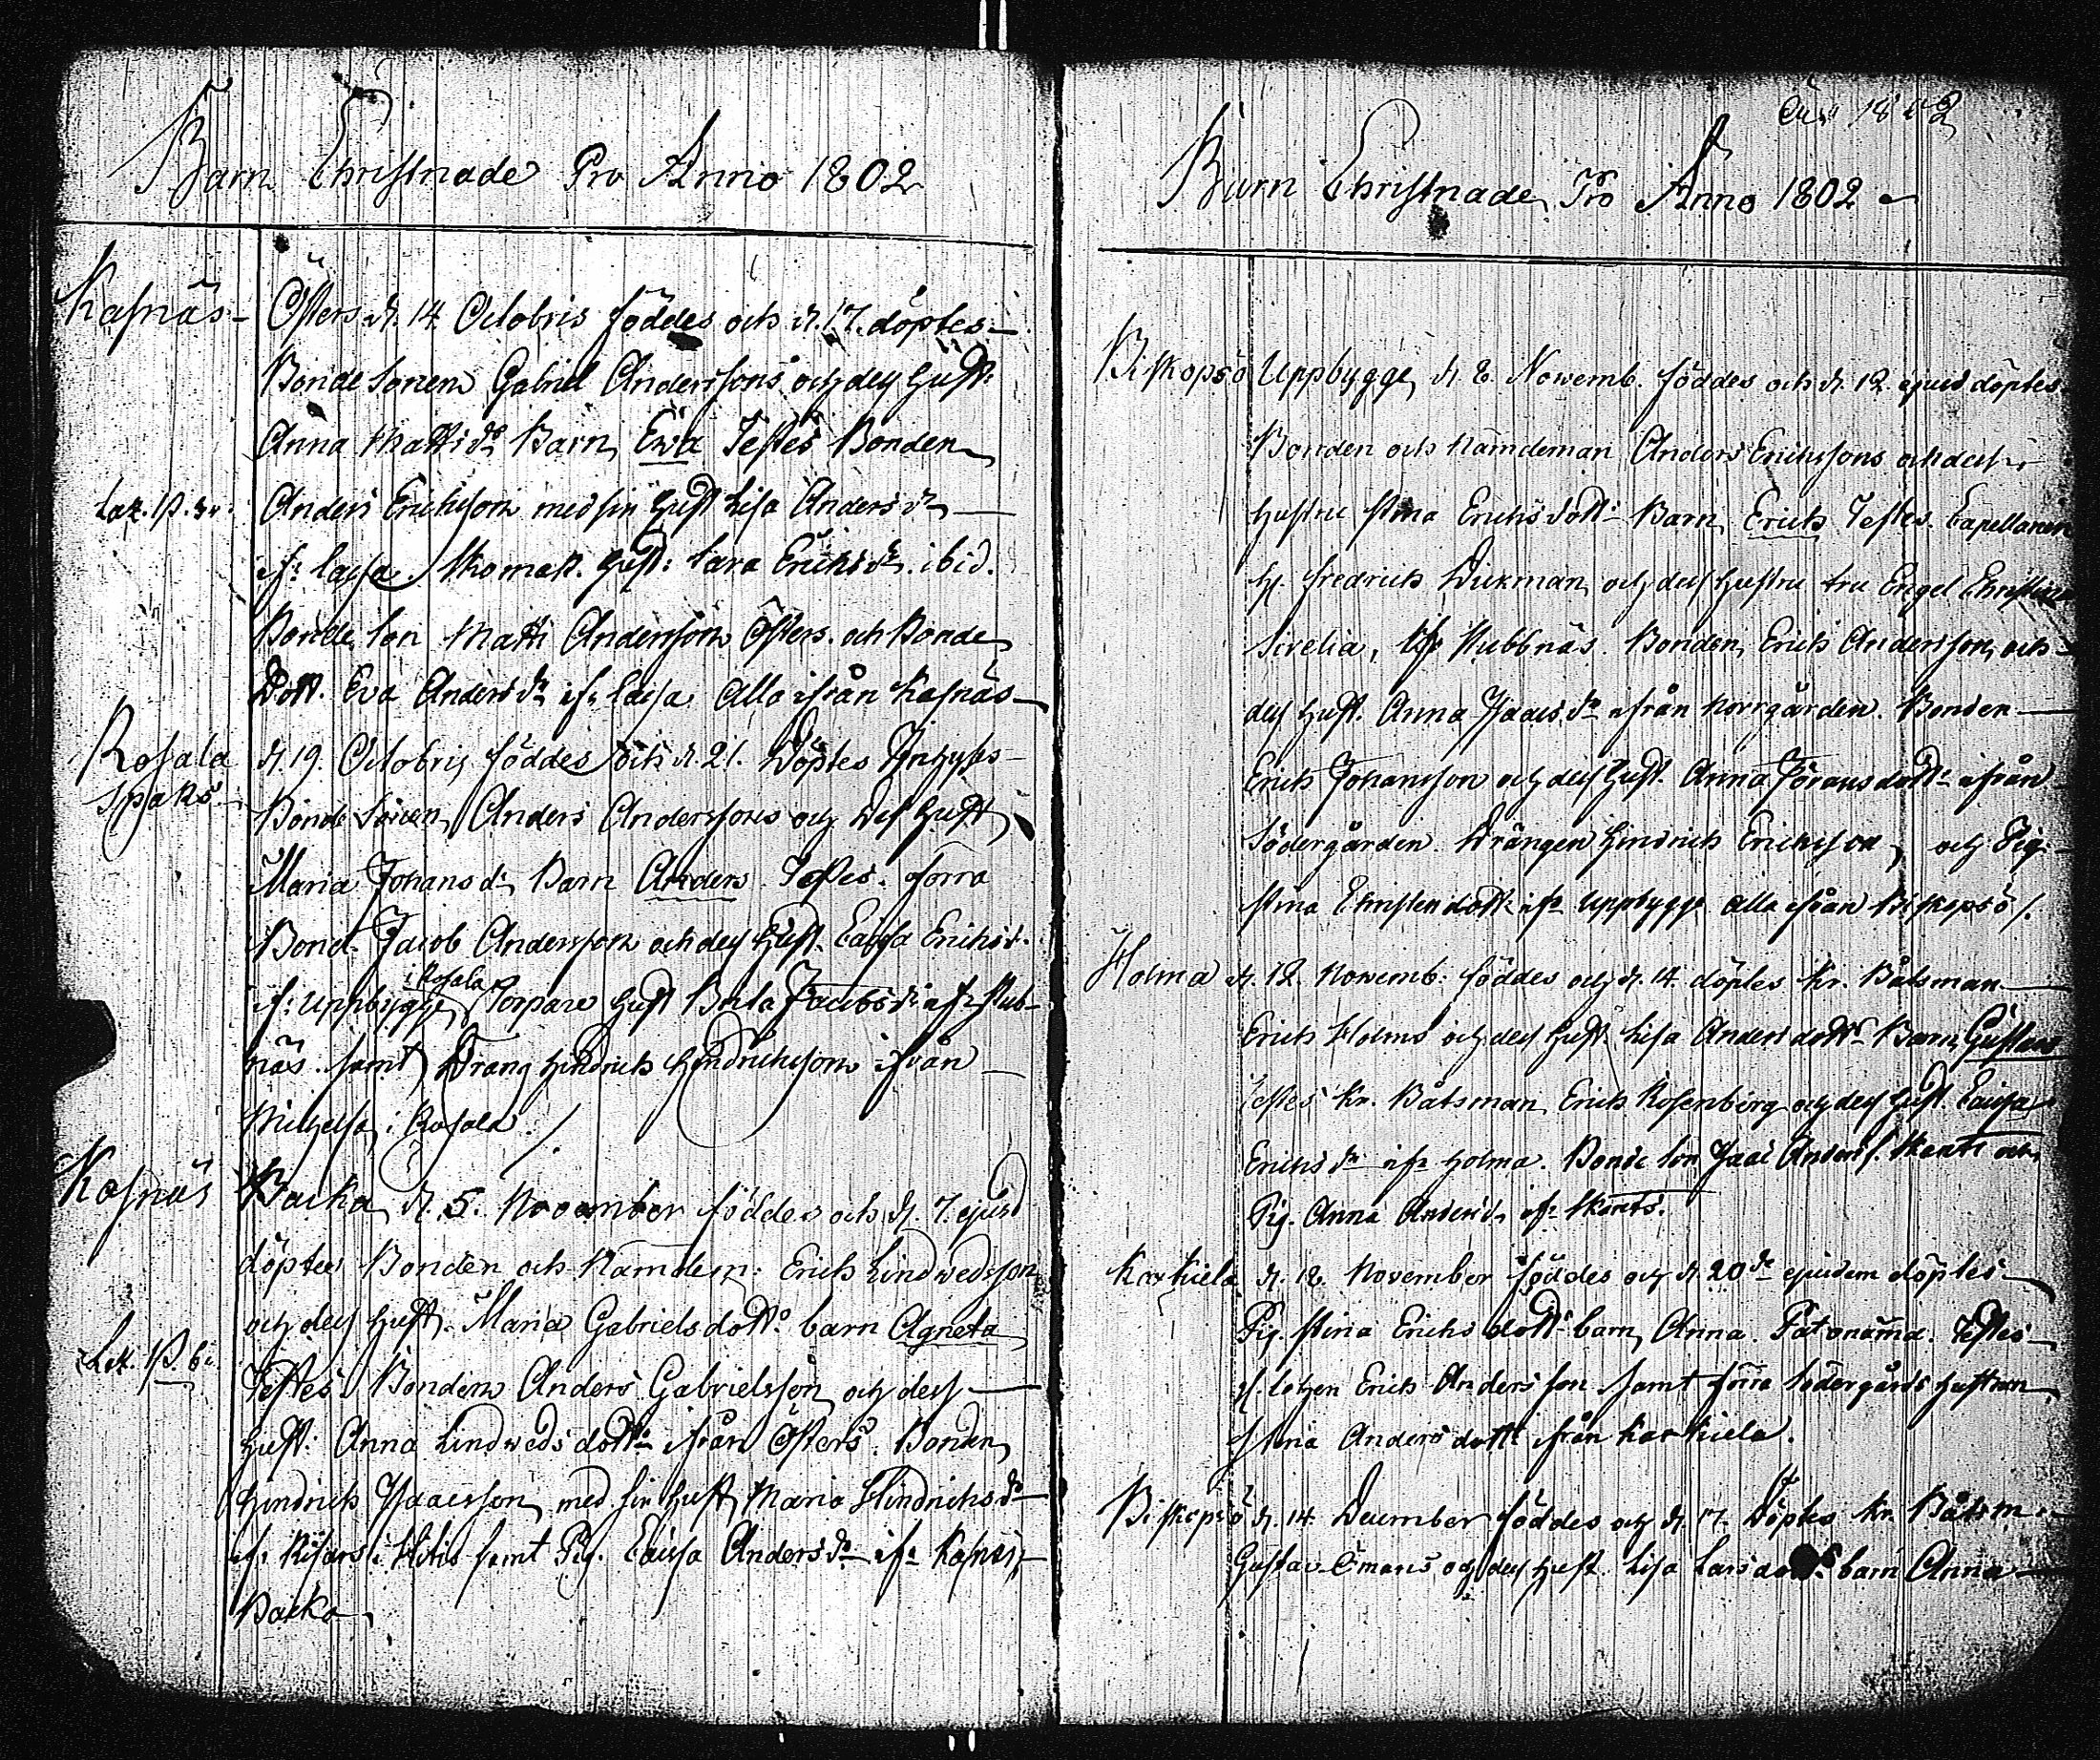 Barn Christnade Pro Anno 1802
Kasnäs
Östers d. 14 Octobris föddes och d. 17. döptes
Bonde Sonens Gabriel Anderssons och dess Hust:
Anna Matts dr Barn, Eva Testes Bonden
Anders Ericksson med sin Hust Lisa Anders dr
ifr: Lassa Hust: Sara Erichs dr. ibid.
Bonde Son Matts Andersson Östers. och Bonde
Dott. Eva Anders dr ifr Lassa Alla ifrån Kasnäs
Rosala
Spaks
d. 19. Octobris föddes och d. 21. Döptes Inhyses
Bonde Sonen Anders Anderssons och Dess Hust
Maria Johans dr Barn Anders Testes. förra
Bond. Jacob Andersson och dess Hust. Caisa Erichs d.
if: Uppbygge i Rosala Torpare Hust Brita Jacobs dr if: Stub-
näs. samt Dräng Hindrich Hindrichsson ifrån
i Rosala.
Kasnäs
Backa d. 5. November föddes och d. 7. ejusd
döptes Bonden och Nämdem: Erich Lindwedsson
och dess Hust. Maria Gabrielsdottr barn Agneta
Testes Bonden Anders Gabrielsson och dess
Hust: Anna Lindwedsdottr ifrån Östers. Bonden
Hindrich Isaacsson med sin Hust Maria Hindrichs dr
if: i Hitis samt Pig. Caisa Anders dr ifr Kasnäs
Backa
1802
Barn Christnade Pro Anno 1802
Biskopsö
Uppbygge d. 8. Novemb. föddes och d. 12 ejusd döptes
Bonden och Nämdeman Anders Erichssons och dess
Hustru Stina Erichsdottr Barn Erich Testes. Capellanen
H. Fredrich Dickman och dess Hustru Fru Engel Christina
Sirelia, Stubbnäs. Bonden Erich Andersson och
dess Hust. Anna Isaacs dr ifrån Norrgården. Bonden
Erich Johansson och dess Hust. Anna Jöransdottr ifrån
Södergården. Drängen Hindrich Ericksson och Pig.
Stina Christersdottr ifr Uppbygge alla ifrån Biskopsö.
Holma
d. 12. Novemb: föddes och d. 14. döptes Kr. Båtsman
Erich Holms och dess Hust. Lisa Andersdottr Barn Gustava
Testes Kr. Båtsman Erich Rosenberg och dess Hust. Caisa
Erichs dr ifr Holma. Bonde Son Isac Anders s. och
Pig. Anna Anders d. ifr
Karkiela
d. 18. November föddes och d. 20 de ejusdem döptes
Pig. Stina Erichsdottr barn Anna. Testes
Erich Andersson samt förra Södergårds Hustrun
Stina Andersdottr ifrån Karkiela.
Biskopsö
d. 14 December föddes och d. 17. Döptes Kr. Båtsm
Gustav Ömans och dess Hust. Lisa Larsdotts barn Anna